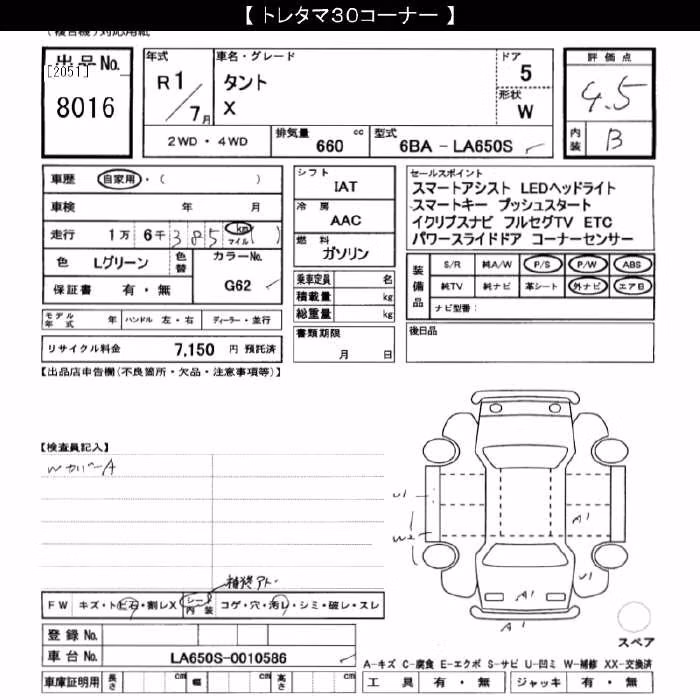 【 トレタマ３０コーナー 】
(複合機)対応用紙
出品No.
[2051]
8016
年式
R 1 / 7 月
車名・グレード
タント
X
ドア
5
形状
W
評価点
4.5
内装
B
2WD・4WD
排気量 660 cc
型式 6BA - LA650S
車歴 自家用・( )
車検 年 月
走行 1万 6千 385 km マイル ( )
色 Lグリーン 色替
カラーNo. G62
保証書 有・無
モデル年式 年 ハンドル 左・右 ディーラー・並行
リサイクル料金 7,150 円 預託済
シフト
IAT
冷房
AAC
燃料
ガソリン
乗車定員 名
積載量 kg
総重量 kg
書類期限
月 日
セールスポイント
スマートアシスト LEDヘッドライト
スマートキー プッシュスタート
イクリプスナビ フルセグTV ETC
パワースライドドア コーナーセンサー
装備品
S/R 純A/W P/S P/W ABS
純TV 純ナビ 革シート 外ナビ エアB
ナビ型番：
後日品
【出品店申告欄(不良箇所・欠品・注意事項等)】
【検査員記入】
WカバーA
補修アト
FW キズ・トビ石・割レX シート内装 コゲ・穴・汚レ・シミ・破レ・スレ
登録No.
車台No. LA650S-0010586
車庫証明用 長さ cm 幅 cm 高さ cm
U1
W2
A1
U1
A1
A1
スペア
A-キズ C-腐食 E-エクボ S-サビ U-凹ミ W-補修 XX-交換済
工具 有・無 ジャッキ 有・無